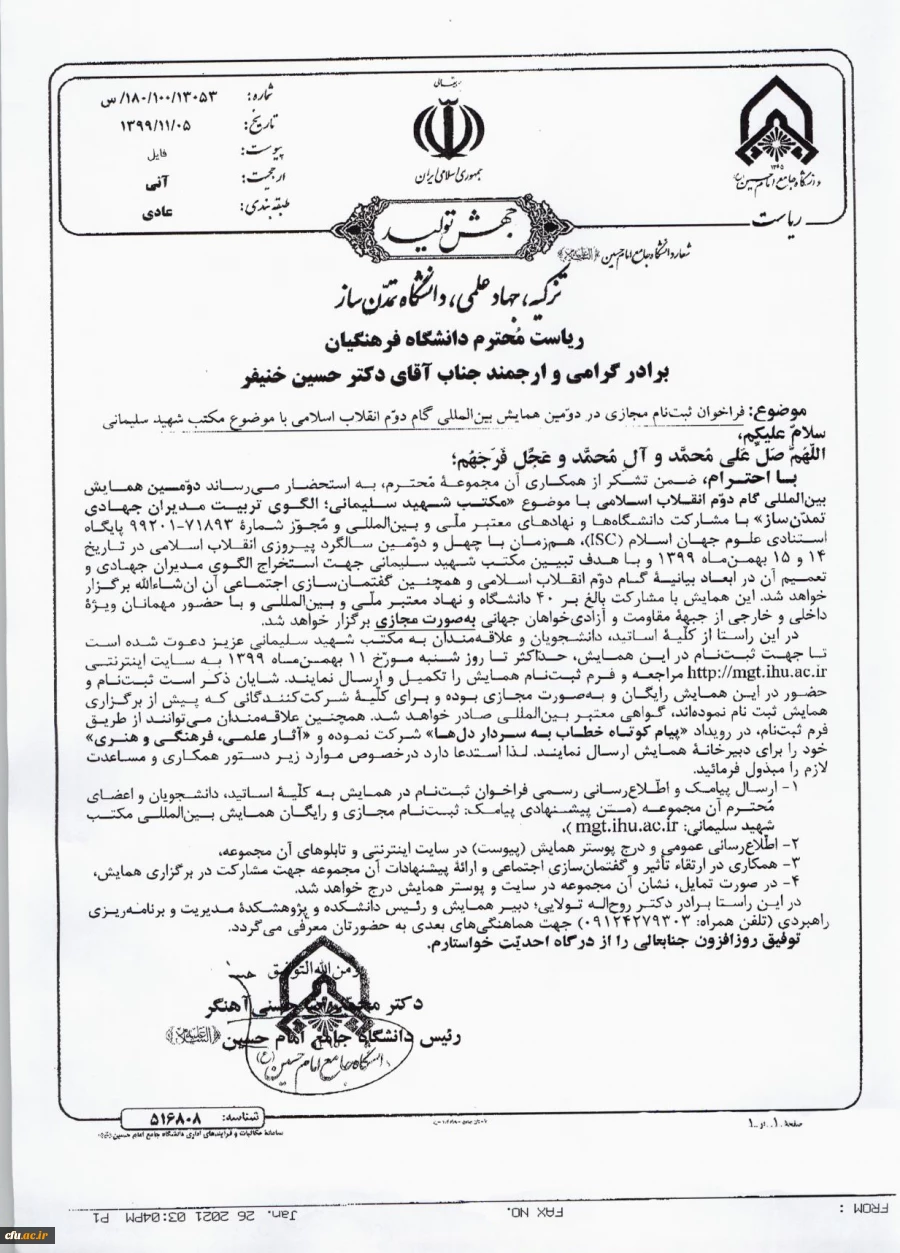 شماره: ۱۸۰/۱۰۰/۱۳۰۵۳/س
تاریخ: ۱۳۹۹/۱۱/۰۵
پیوست: فایل
ارجحیت: آنی
طبقه‌بندی: عادی
جمهوری اسلامی ایران
۱۳۶۵
دانشگاه جامع امام حسین(ع)
ریاست
جهش تولید
شعار دانشگاه جامع امام حسین
تزکیه، جهاد علمی، دانشگاه تمدّن ساز
ریاست مُحترم دانشگاه فرهنگیان
برادر گرامی و ارجمند جناب آقای دکتر حسین خنیفر
موضوع: فراخوان ثبت‌نام مجازی در دوّمین همایش بین‌المللی گام دوّم انقلاب اسلامی با موضوع مکتب شهید سلیمانی
سلامٌ علیکم،
اللّهُمَّ صَلِّ عَلی مُحمَّد و آلِ مُحمَّد و عَجِّل فَرَجَهُم؛
بـا احتـرام، ضمـن تشکّر از همکاری آن مجموعـهٔ مُحتـرم، بـه استحضـار مـی‌رسـاند دوّمـین همـایش
بین‌المللی گام دوّم انقـلاب اسـلامی بـا موضـوع «مکتـب شـهید سـلیمانی؛ الگـوی تربیـت مـدیران جهـادی
تمدّن‌ساز» بـا مشـارکت دانشـگاه‌هـا و نهـادهای معتبـر ملّـی و بـین‌المللـی و مُجـوّز شـمارهٔ ۷۱۸۹۳-۹۹۲۰۱ پایگاه
استنادی علـوم جهـان اسـلام (ISC)، هـم‌زمـان بـا چهـل و دوّمـین سـالگرد پیـروزی انقـلاب اسـلامی در تـاریخ
۱۴ و ۱۵ بهمـن‌مـاه ۱۳۹۹ و بـا هـدف تبیـین مکتـب شـهید سـلیمانی جهـت اسـتخراج الگـوی مـدیران جهـادی و
تعمـیم آن در ابعـاد بیانیـهٔ گـام دوّم انقـلاب اسـلامی و همچنـین گفتمـان‌سـازی اجتمـاعی آن ان‌شـاءالله برگـزار
خواهد شد. این همایش با مشارکت بالغ بـر ۴۰ دانشگاه و نهاد معتبـر ملّـی و بـین‌المللـی و بـا حضـور مهمانـان ویـژهٔ
داخلی و خارجی از جبههٔ مقاومت و آزادی‌خواهان جهانی به‌صورت مجازی برگزار خواهد شد.
در این راسـتا از کلّیـهٔ اسـاتید، دانشـجویان و علاقـه‌منـدان بـه مکتـب شـهید سـلیمانی عزیـز دعـوت شـده اسـت
تـا جهـت ثبـت‌نـام در ایـن همـایش، حـداکثر تـا روز شـنبه مـورّخ ۱۱ بهمـن‌مـاه ۱۳۹۹ بـه سـایت اینترنتـی
http://mgt.ihu.ac.ir مراجعـه و فـرم ثبـت‌نـام همـایش را تکمیـل و ارسـال نماینـد. شـایان ذکـر اسـت ثبـت‌نـام و
حضـور در ایـن همـایش رایگـان و بـه‌صـورت مجـازی بـوده و بـرای کلّیـهٔ شـرکت‌کننـدگانی کـه پـیش از برگـزاری
همایش ثبت نام نموده‌اند، گـواهی معتبـر بـین‌المللـی صـادر خواهـد شـد. همچنـین علاقـه‌منـدان مـی‌تواننـد از طریـق
فرم ثبت‌نام، در رویداد «پیام کوتاه خطاب به سردار دل‌ها» شرکت نموده و «آثـار علمـی، فرهنگـی و هنـری»
خود را برای دبیرخانهٔ همایش ارسال نمایند. لـذا استدعا دارد درخصوص موارد زیر دستور همکاری و مساعدت
لازم را مبذول فرمائید.
۱- ارسـال پیامـک و اطّلاع‌رسـانی رسـمی فراخـوان ثبـت‌نـام در همـایش بـه کلّیـهٔ اسـاتید، دانشـجویان و اعضـای
مُحتـرم آن مجموعـه (متـن پیشـنهادی پیامـک: ثبـت‌نـام مجـازی و رایگـان همـایش بـین‌المللـی مکتـب
شهید سلیمانی: mgt.ihu.ac.ir)،
۲- اطّلاع‌رسانی عمومی و درج پوستر همایش (پیوست) در سایت اینترنتی و تابلوهای آن مجموعه،
۳- همکاری در ارتقاء تأثیر و گفتمان‌سازی اجتماعی و ارائهٔ پیشنهادات آن مجموعه جهت مشارکت در برگزاری همایش،
۴- در صورت تمایل، نشان آن مجموعه در سایت و پوستر همایش درج خواهد شد.
در ایـن راسـتا بـرادر دکتـر روح‌الـه تـولایی؛ دبیـر همـایش و رئـیس دانشـکده و پژوهشـکدهٔ مـدیریت و برنامـه‌ریـزی
راهبردی (تلفن همراه: ۰۹۱۲۴۲۷۹۳۰۳) جهت هماهنگی‌های بعدی به حضورتان معرفی می‌گردد.
توفیق روزافزون جنابعالی را از درگاه احدیّت خواستارم.
ومن الله التوفیق
دکتر محمدرضا حسنی آهنگر
رئیس دانشگاه جامع امام حسین
دانشگاه جامع امام حسین(ع)
شناسه: ۵۱۶۸۰۸
سامانهٔ مکاتبات و فرایندهای اداری دانشگاه جامع امام حسین
صفحه ۱ از ۱
FROM : FAX NO. Jan. 26 2021 03:04PM P1
cfu.ac.ir